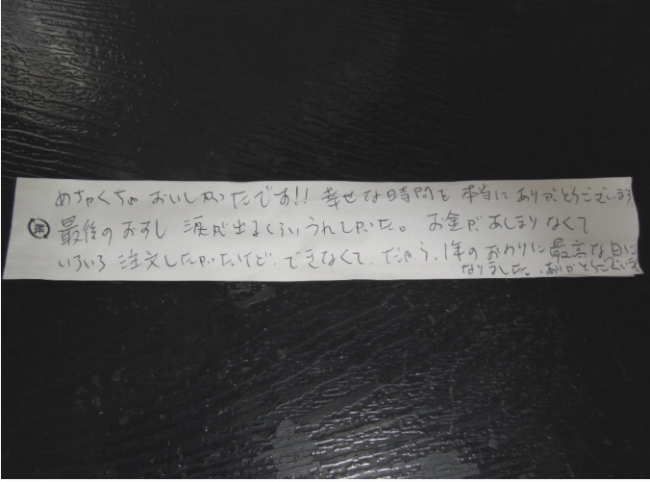 めちゃくちゃ おいしかったです!! 幸せな時間を 本当に ありがとうございます
最後の おすし 涙が出るくらい うれしかった。 お金が あまりなくて
いろいろ 注文したかったけど、できなくて、だけど、1年の おわりに 最高な日に
なりました。ありがとうございます